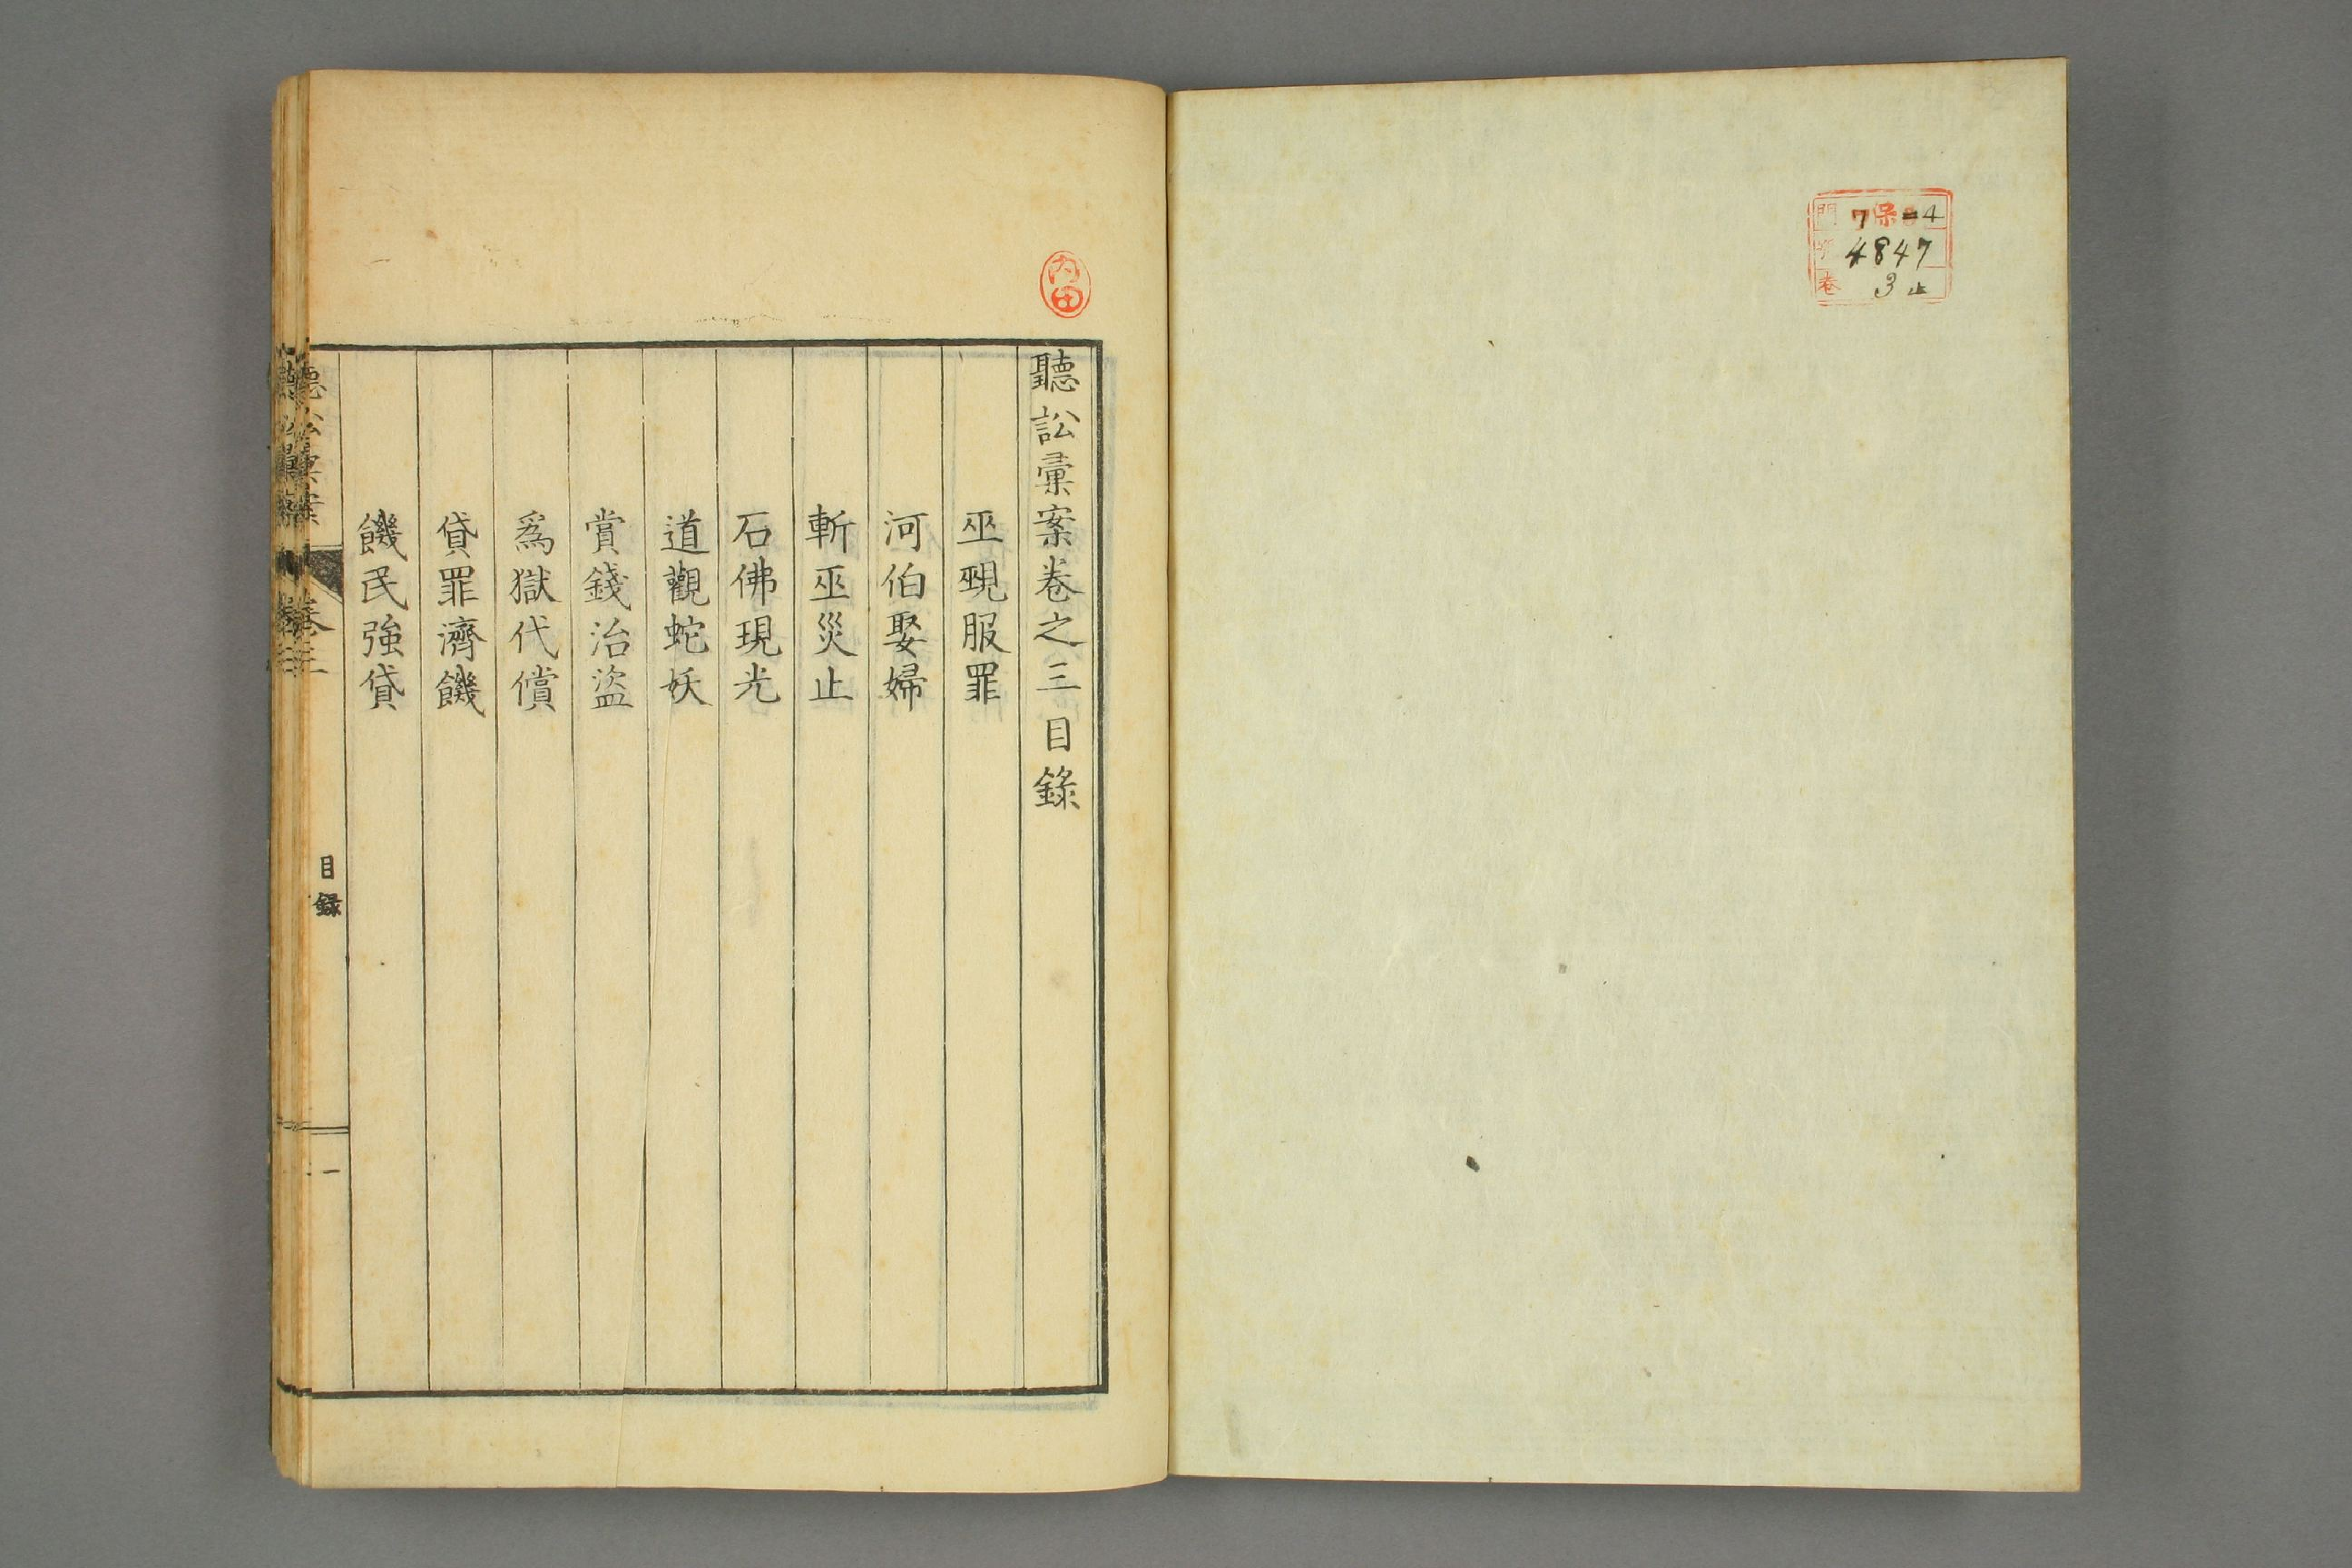 門 7保8-4
4847
卷 3止
内田
聽訟彙案卷之三目錄
巫覡服罪
河伯娶婦
斬巫災止
石佛現光
道觀蛇妖
賞錢治盜
爲獄代償
貸罪濟饑
饑民強貸
聽訟彙案
卷三
目録
一